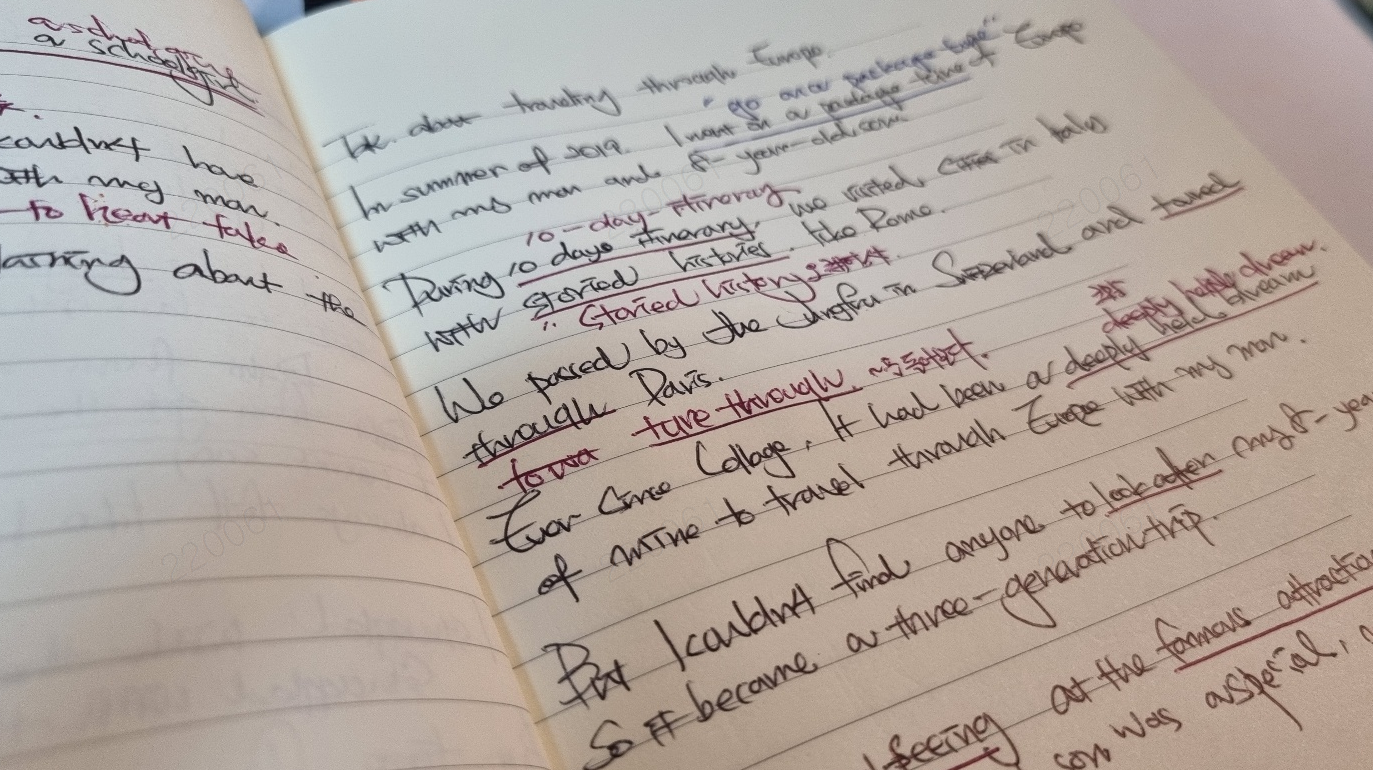 a schologist
couldn't have
with my mom
to heart take
learning about the
Tak about traveling through Europe.
"go on a package type"
In summer of 2019. I want on a package tour of Europe
with my mom and 8-year-old.son.
10-day-itinerary
During 10 days itinerary, we visited cities in Italy
with storied histories. like Rome.
"storied history
We passed by the Jungfru in Switzerland and toured
through Paris.
ture-through.
deeply held dream.
Ever Since Collage, It had been a deeply held dream
of mine to travel through Europe with my mom.
But I couldn't find anyone to look after my 8-yea
So it became a three-generation trip.
seeing at the famous attractio
son was aspecial,